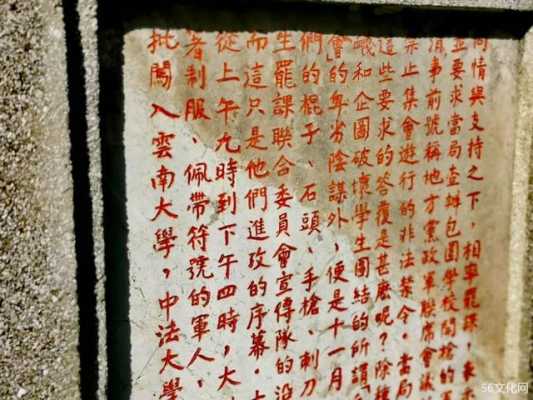 同情與支持之下，相率罷課，表示
並要求當局查辦包圍學校開槍的軍
消事前號稱地方黨政軍聯席會議
禁止集會遊行的非法禁令。當局
這些要求的答復是甚麼呢？除種
嶬和企圖破壞學生團結的所謂
會」的卑劣陰謀外，便是十一月
們的棍子、石頭、手槍、刺刀
生罷課聯合委員會宣傳隊的沿
而這只是他們進攻的序幕。
從上午九時到下午四時，大
著制服、佩帶符號的軍人，
批闖入雲南大學，中法大學
56文化网